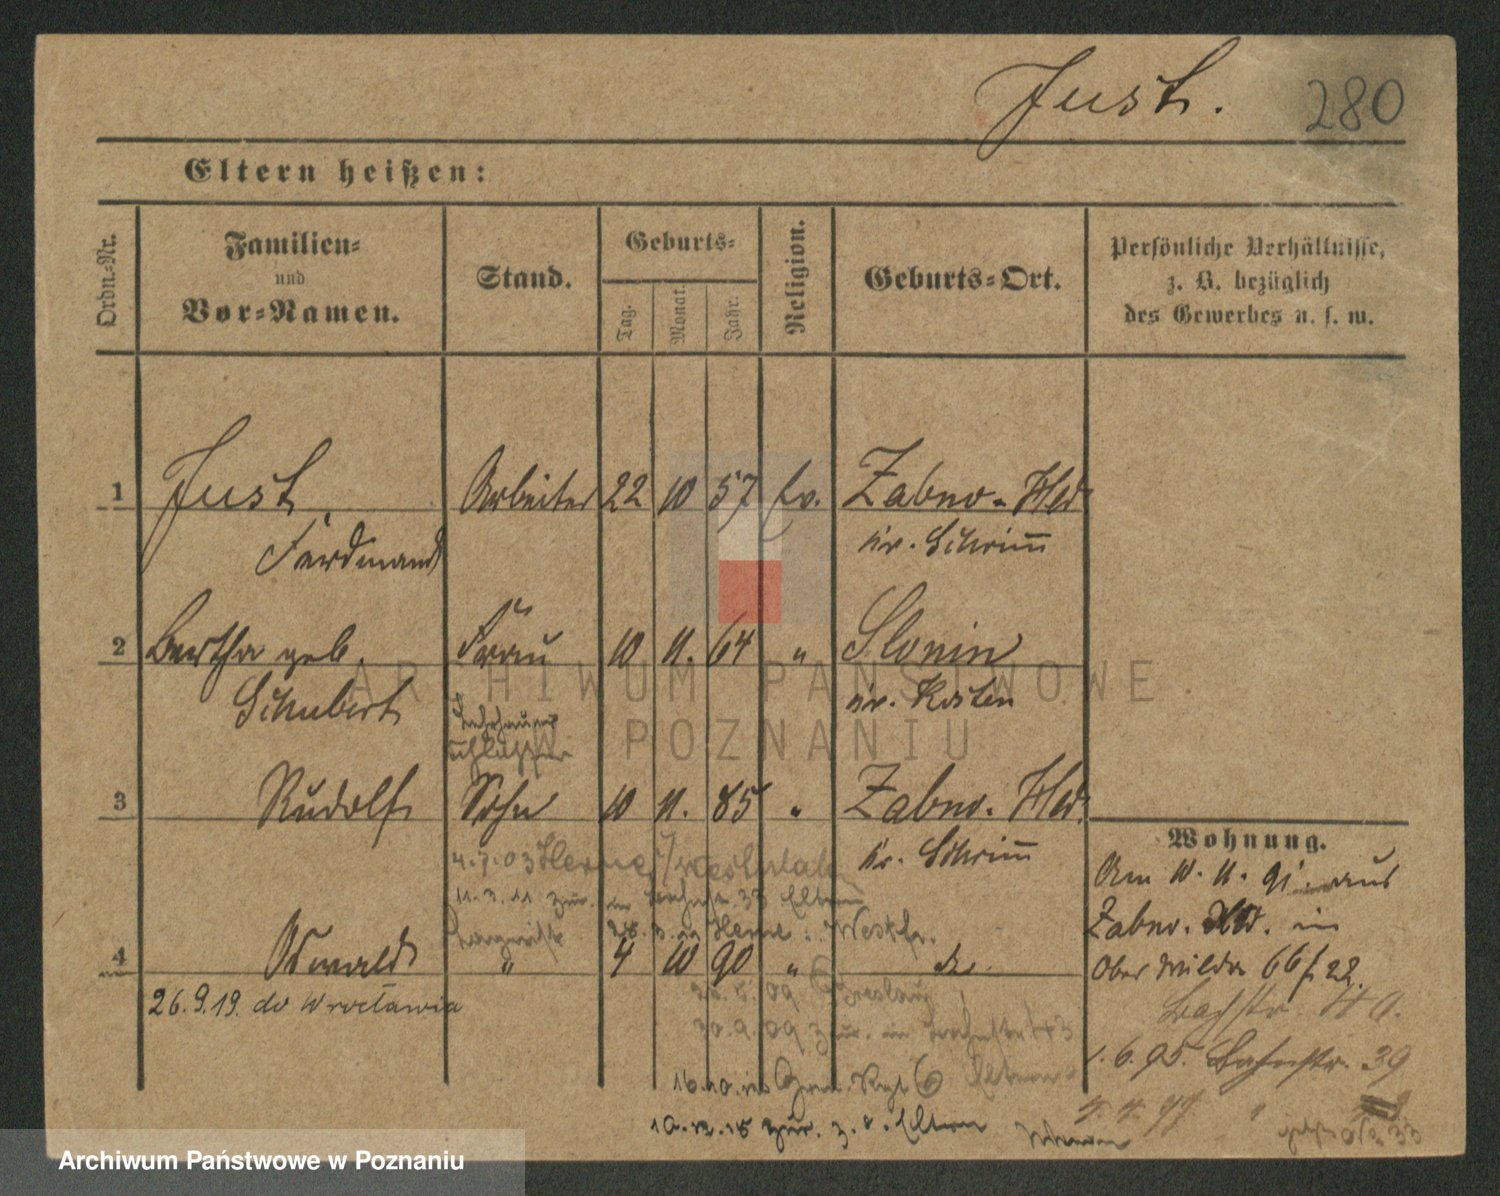 Just. 280
Eltern heißen:
Ordn.-Nr.
Familien-
und
Vor-Namen.
Stand.
Geburts-
Tag.
Monat.
Jahr.
Religion.
Geburts-Ort.
Persönliche Verhältnisse,
z. B. bezüglich
des Gewerbes u. s. w.
1 Just, Arbeiter 22 10 57 Ev. Zabno-Hld
Ferdinand Kr. Schrimm
2 Bertha geb. Frau 10 11. 64 " Slonin
Schubert Kr. Kosten
3 Rudolf Sohn 10 11. 85 " Zabno-Hld.
Kr. Schrimm
4.7.03 Herne / Westfalen
11.3.11 zur. in 33 Eltern
Herne Westf.
4 Oswald " 4 10 90 " do.
26.9.19. do Wrocławia
09 Breslau
30.9.09 zur. in 43
16.10. Gren. Rgt 6 Eltern
10.12.18 zur. z. Eltern
Wohnung.
Am 10. 11. 91 aus
Zabno. Hld. in
Ober Wilda 66 f. 22.
Bachstr.
1.6.95. Bahnstr. 39
4.4.97 "
33
ARCHIWUM PAŃSTWOWE
W POZNANIU
Archiwum Państwowe w Poznaniu